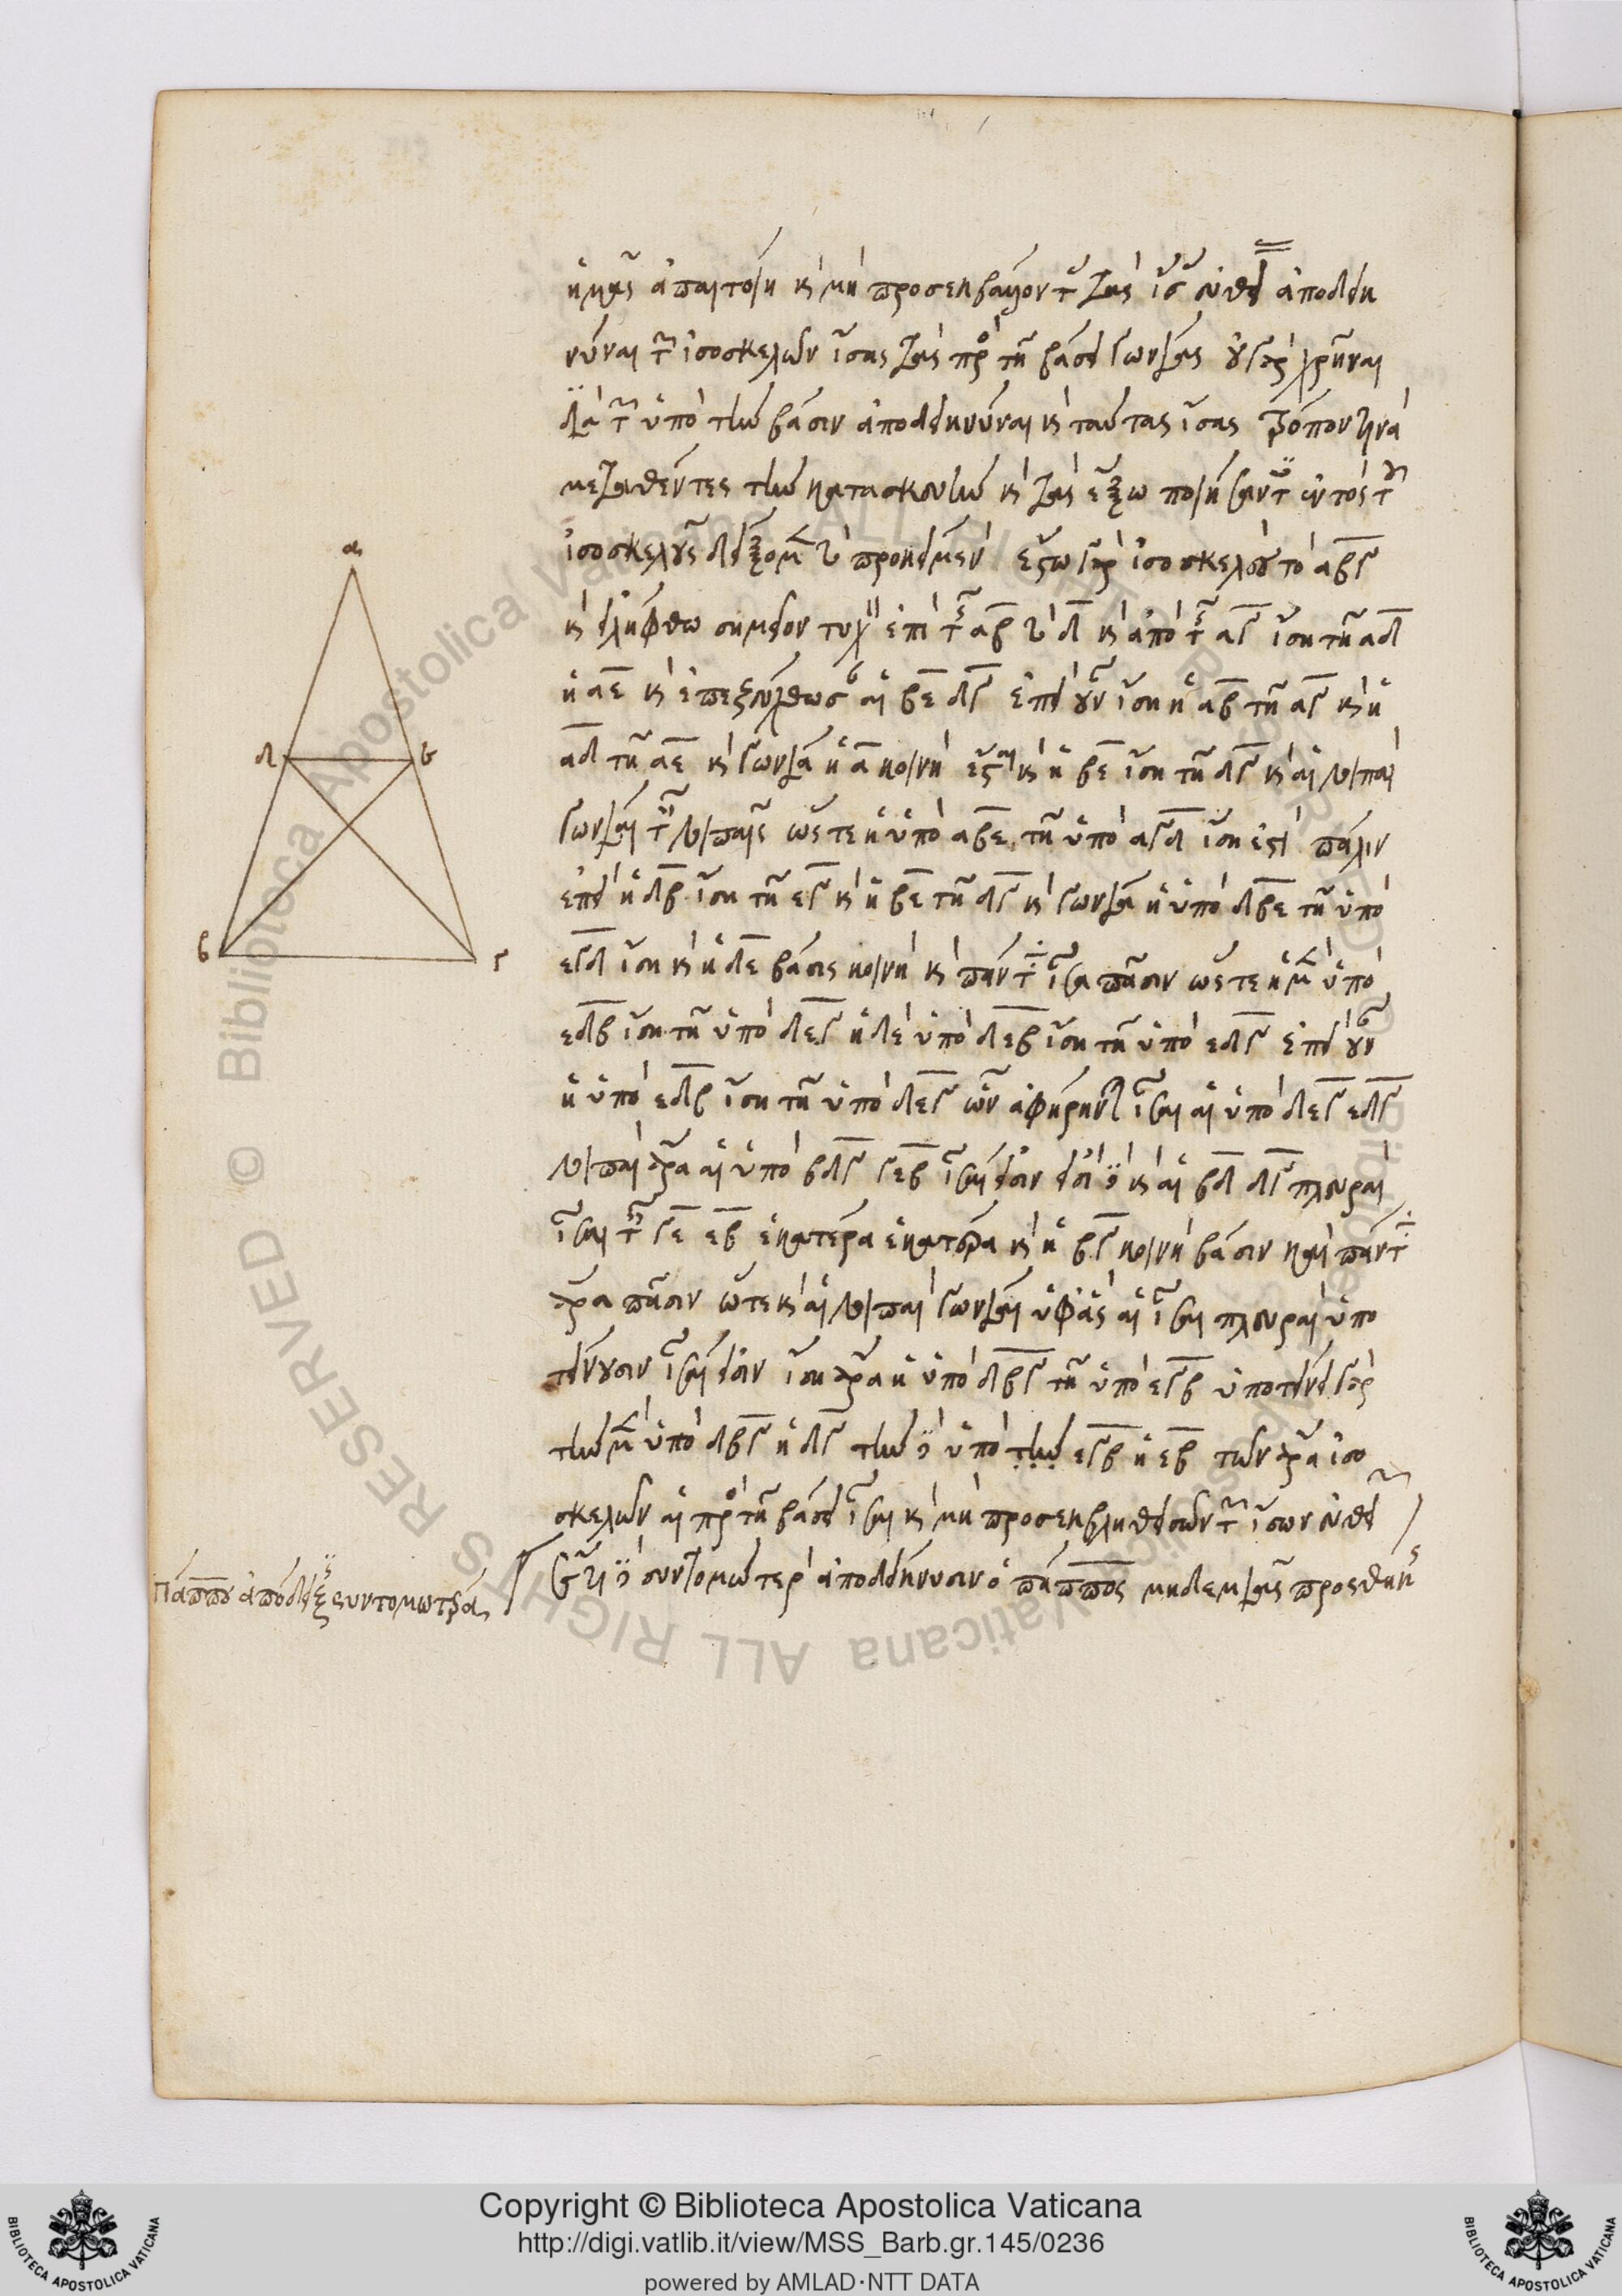 ἡμᾶς ἀπαιτοίη καὶ μὴ προσεκβάλλοντας τὰς ἴσας εὐθείας ἀποδεικ
νύναι τῶν ἰσοσκελῶν ἴσας τὰς πρὸς τῇ βάσει γωνίας οὐ γὰρ χρῆναι
διὰ τῶν ὑπὸ τὴν βάσιν ἀποδεικνύναι καὶ ταύτας ἴσας τρόπον τινὰ
μεταθέντες τὴν κατασκευὴν καὶ τὰς ἔξω ποιήσαντες ἐντὸς τοῦ
ἰσοσκελοῦς δείξομεν τὸ προκείμενον ἔστω γὰρ ἰσοσκελὲς τὸ αβγ
καὶ εἰλήφθω σημεῖον τυχὸν ἐπὶ τῆς αβ τὸ δ καὶ ἀπὸ τῆς αγ ἴση τῇ αδ
ἡ αε καὶ ἐπεζεύχθωσαν αἱ βε δγ ἐπεὶ οὖν ἴση ἡ αβ τῇ αγ καὶ ἡ
αδ τῇ αε καὶ γωνία ἡ α κοινή ἔσται καὶ ἡ βε ἴση τῇ δγ καὶ αἱ λοιπαὶ
γωνίαι ταῖς λοιπαῖς ὥστε ἡ ὑπὸ αβε τῇ ὑπὸ αγδ ἴση ἐστί πάλιν
ἐπεὶ ἡ δβ ἴση τῇ εγ καὶ ἡ βε τῇ δγ καὶ γωνία ἡ ὑπὸ δβε τῇ ὑπὸ
εγδ ἴση καὶ ἡ δε βάσις κοινὴ καὶ πάντα ἴσα πᾶσιν ὥστε ἡ μὲν ὑπὸ
εδβ ἴση τῇ ὑπὸ δεγ ἡ δὲ ὑπὸ δεβ ἴση τῇ ὑπὸ εδγ ἐπεὶ οὖν
ἡ ὑπὸ εδβ ἴση τῇ ὑπὸ δεγ ὧν ἀφῄρηνται ἴσαι αἱ ὑπὸ δεγ εδγ
λοιπαὶ ἄρα αἱ ὑπὸ βδγ γεβ ἴσαι εἰσίν εἰσὶ δὲ καὶ αἱ βδ δγ πλευραὶ
ἴσαι ταῖς γε εβ ἑκατέρα ἑκατέρα καὶ ἡ βγ κοινὴ βάσιν καὶ πάντα
ἄρα πᾶσιν ὥστε καὶ αἱ λοιπαὶ γωνίαι ὑφ ἃς αἱ ἴσαι πλευραὶ ὑπο
τείνουσιν ἴσαι εἰσίν ἴση ἄρα ἡ ὑπὸ δβγ τῇ ὑπὸ εγβ ὑποτείνει γὰρ
τὴν μὲν ὑπὸ δβγ ἡ δγ τὴν δὲ ὑπὸ τὴν εγβ ἡ εβ τῶν ἄρα ἰσο
σκελῶν αἱ πρὸς τῇ βάσει ἴσαι καὶ μὴ προσεκβληθεισῶν τῶν ἴσων εὐθειῶν
ἔτι δὲ συντομώτερον ἀποδείκνυσιν ὁ πάππος μηδεμιᾶς προσθήκης
Πάππου ἀπόδειξις συντομωτέρα
α
δ
ε
β
γ
Copyright © Biblioteca Apostolica Vaticana
http://digi.vatlib.it/view/MSS_Barb.gr.145/0236
powered by AMLAD·NTT DATA